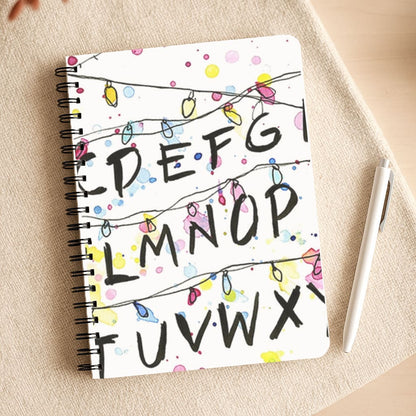 CDEFG
LMNOP
TUVWXY